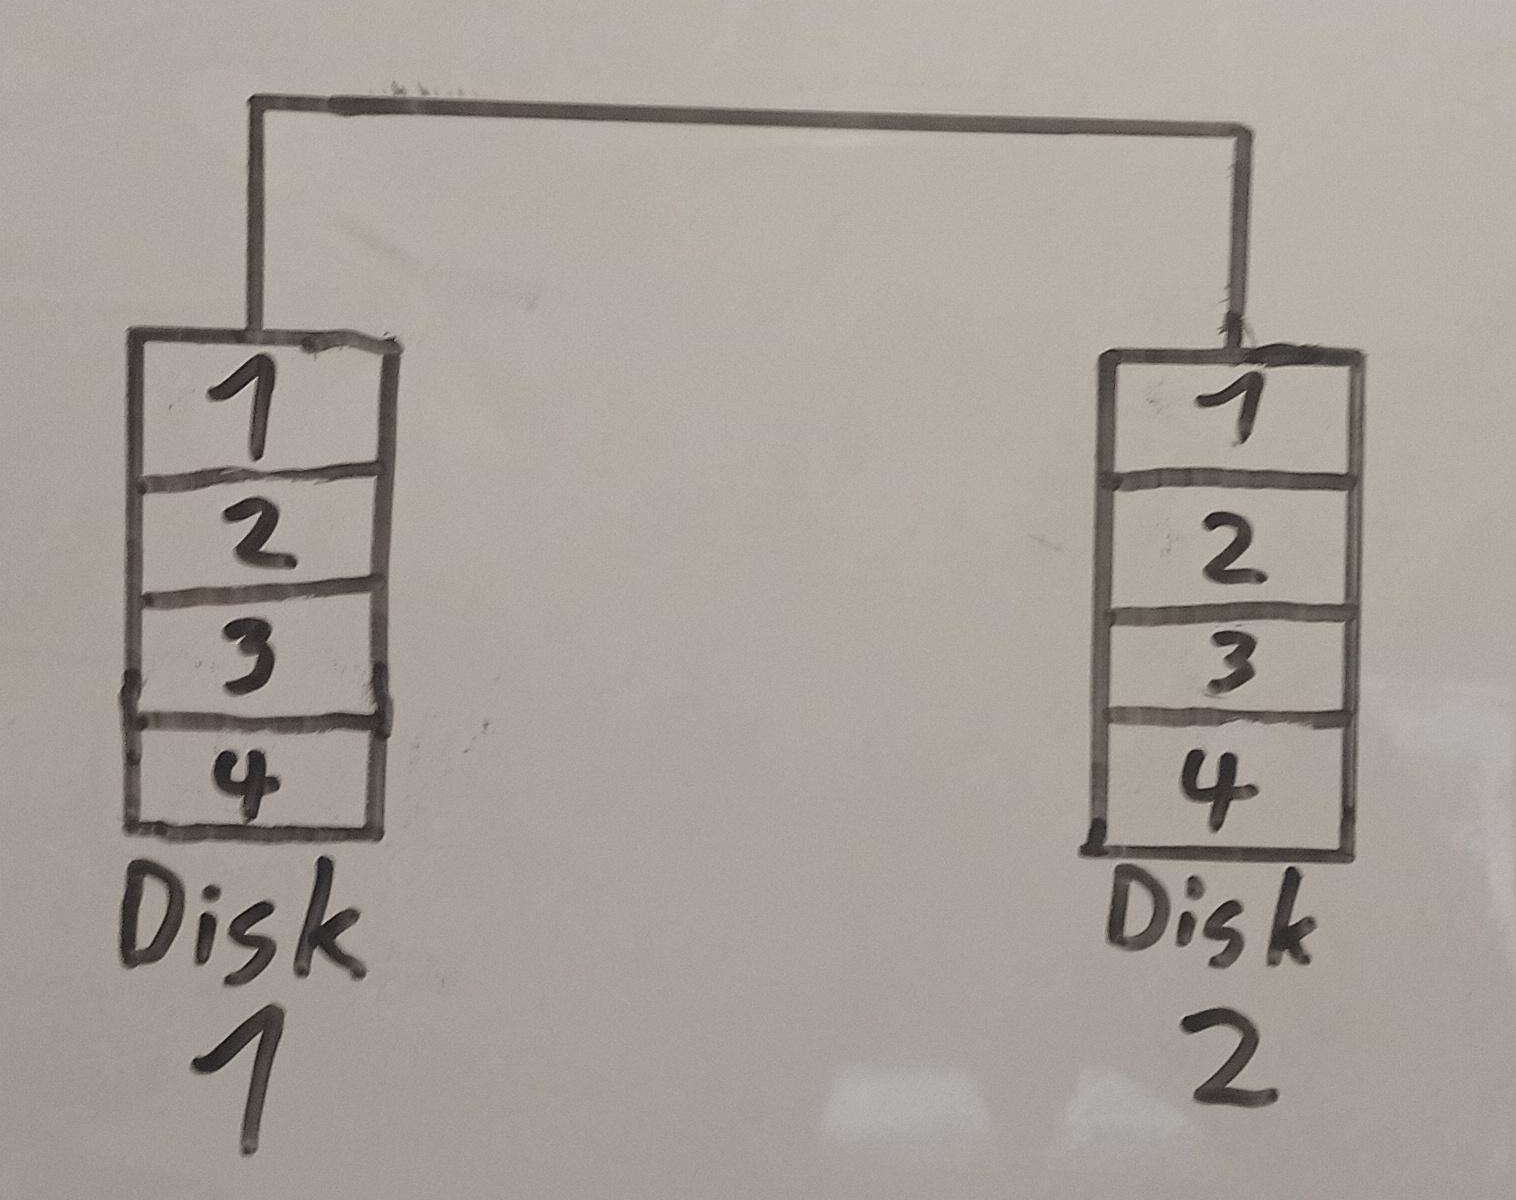 1
2
3
4
Disk
1
1
2
3
4
Disk
2